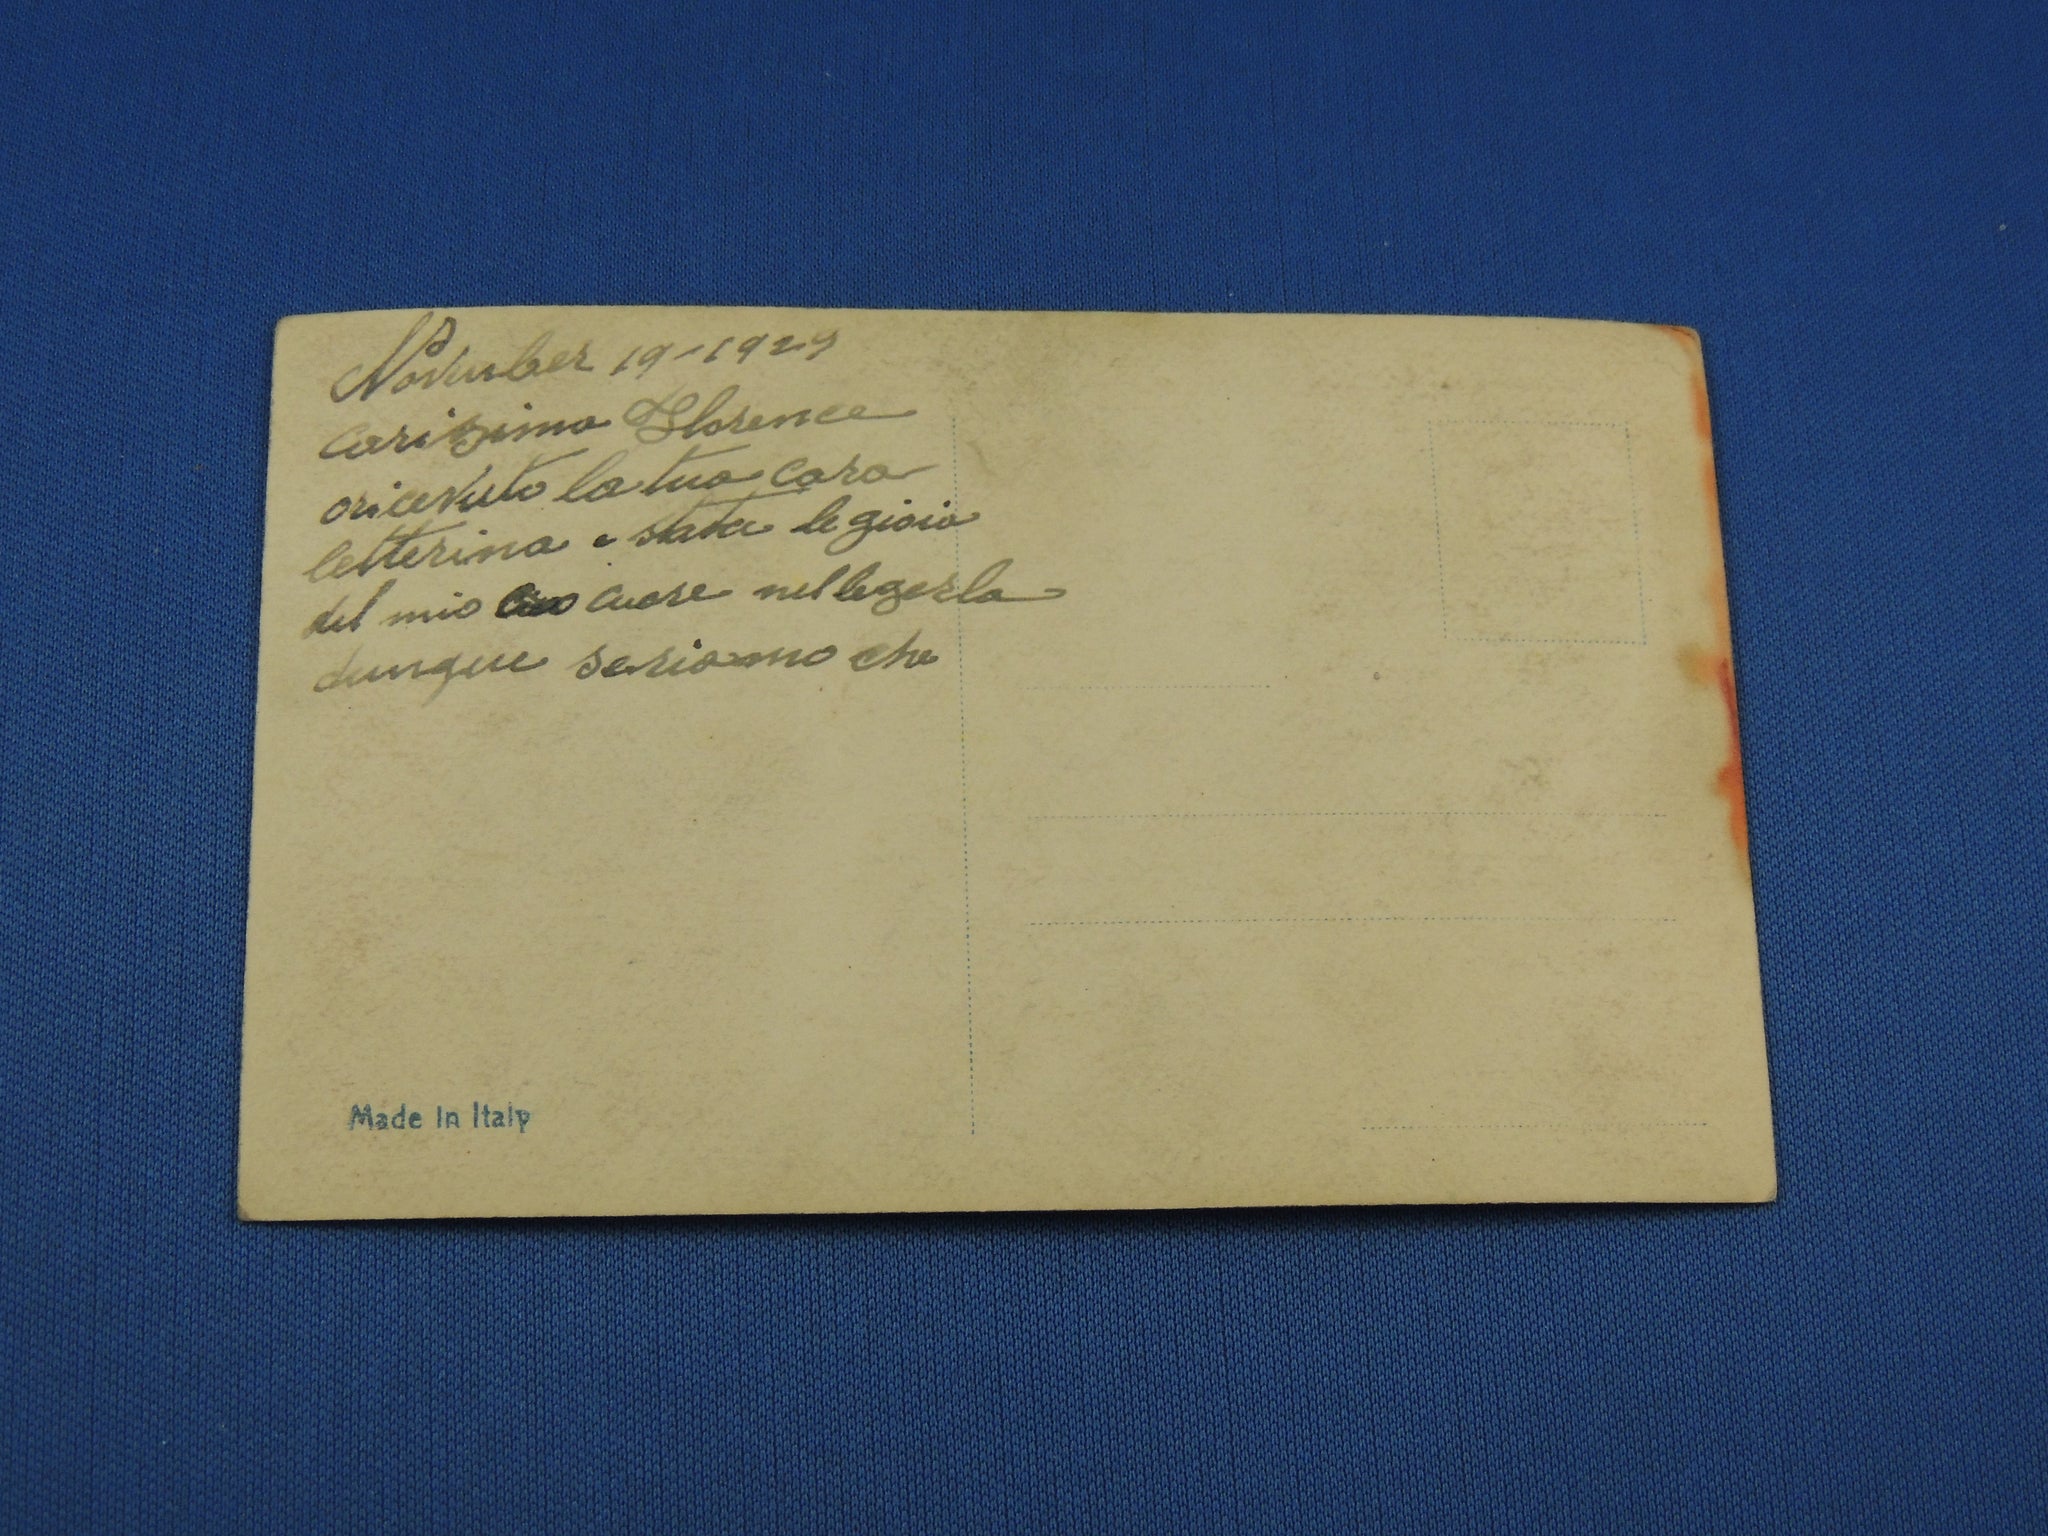 November 19-1929
carisima Florence
oricevuto la tua cara
letterina e stata le gioia
del mio cuore nel legerla
dunque seriamo che
Made in Italy